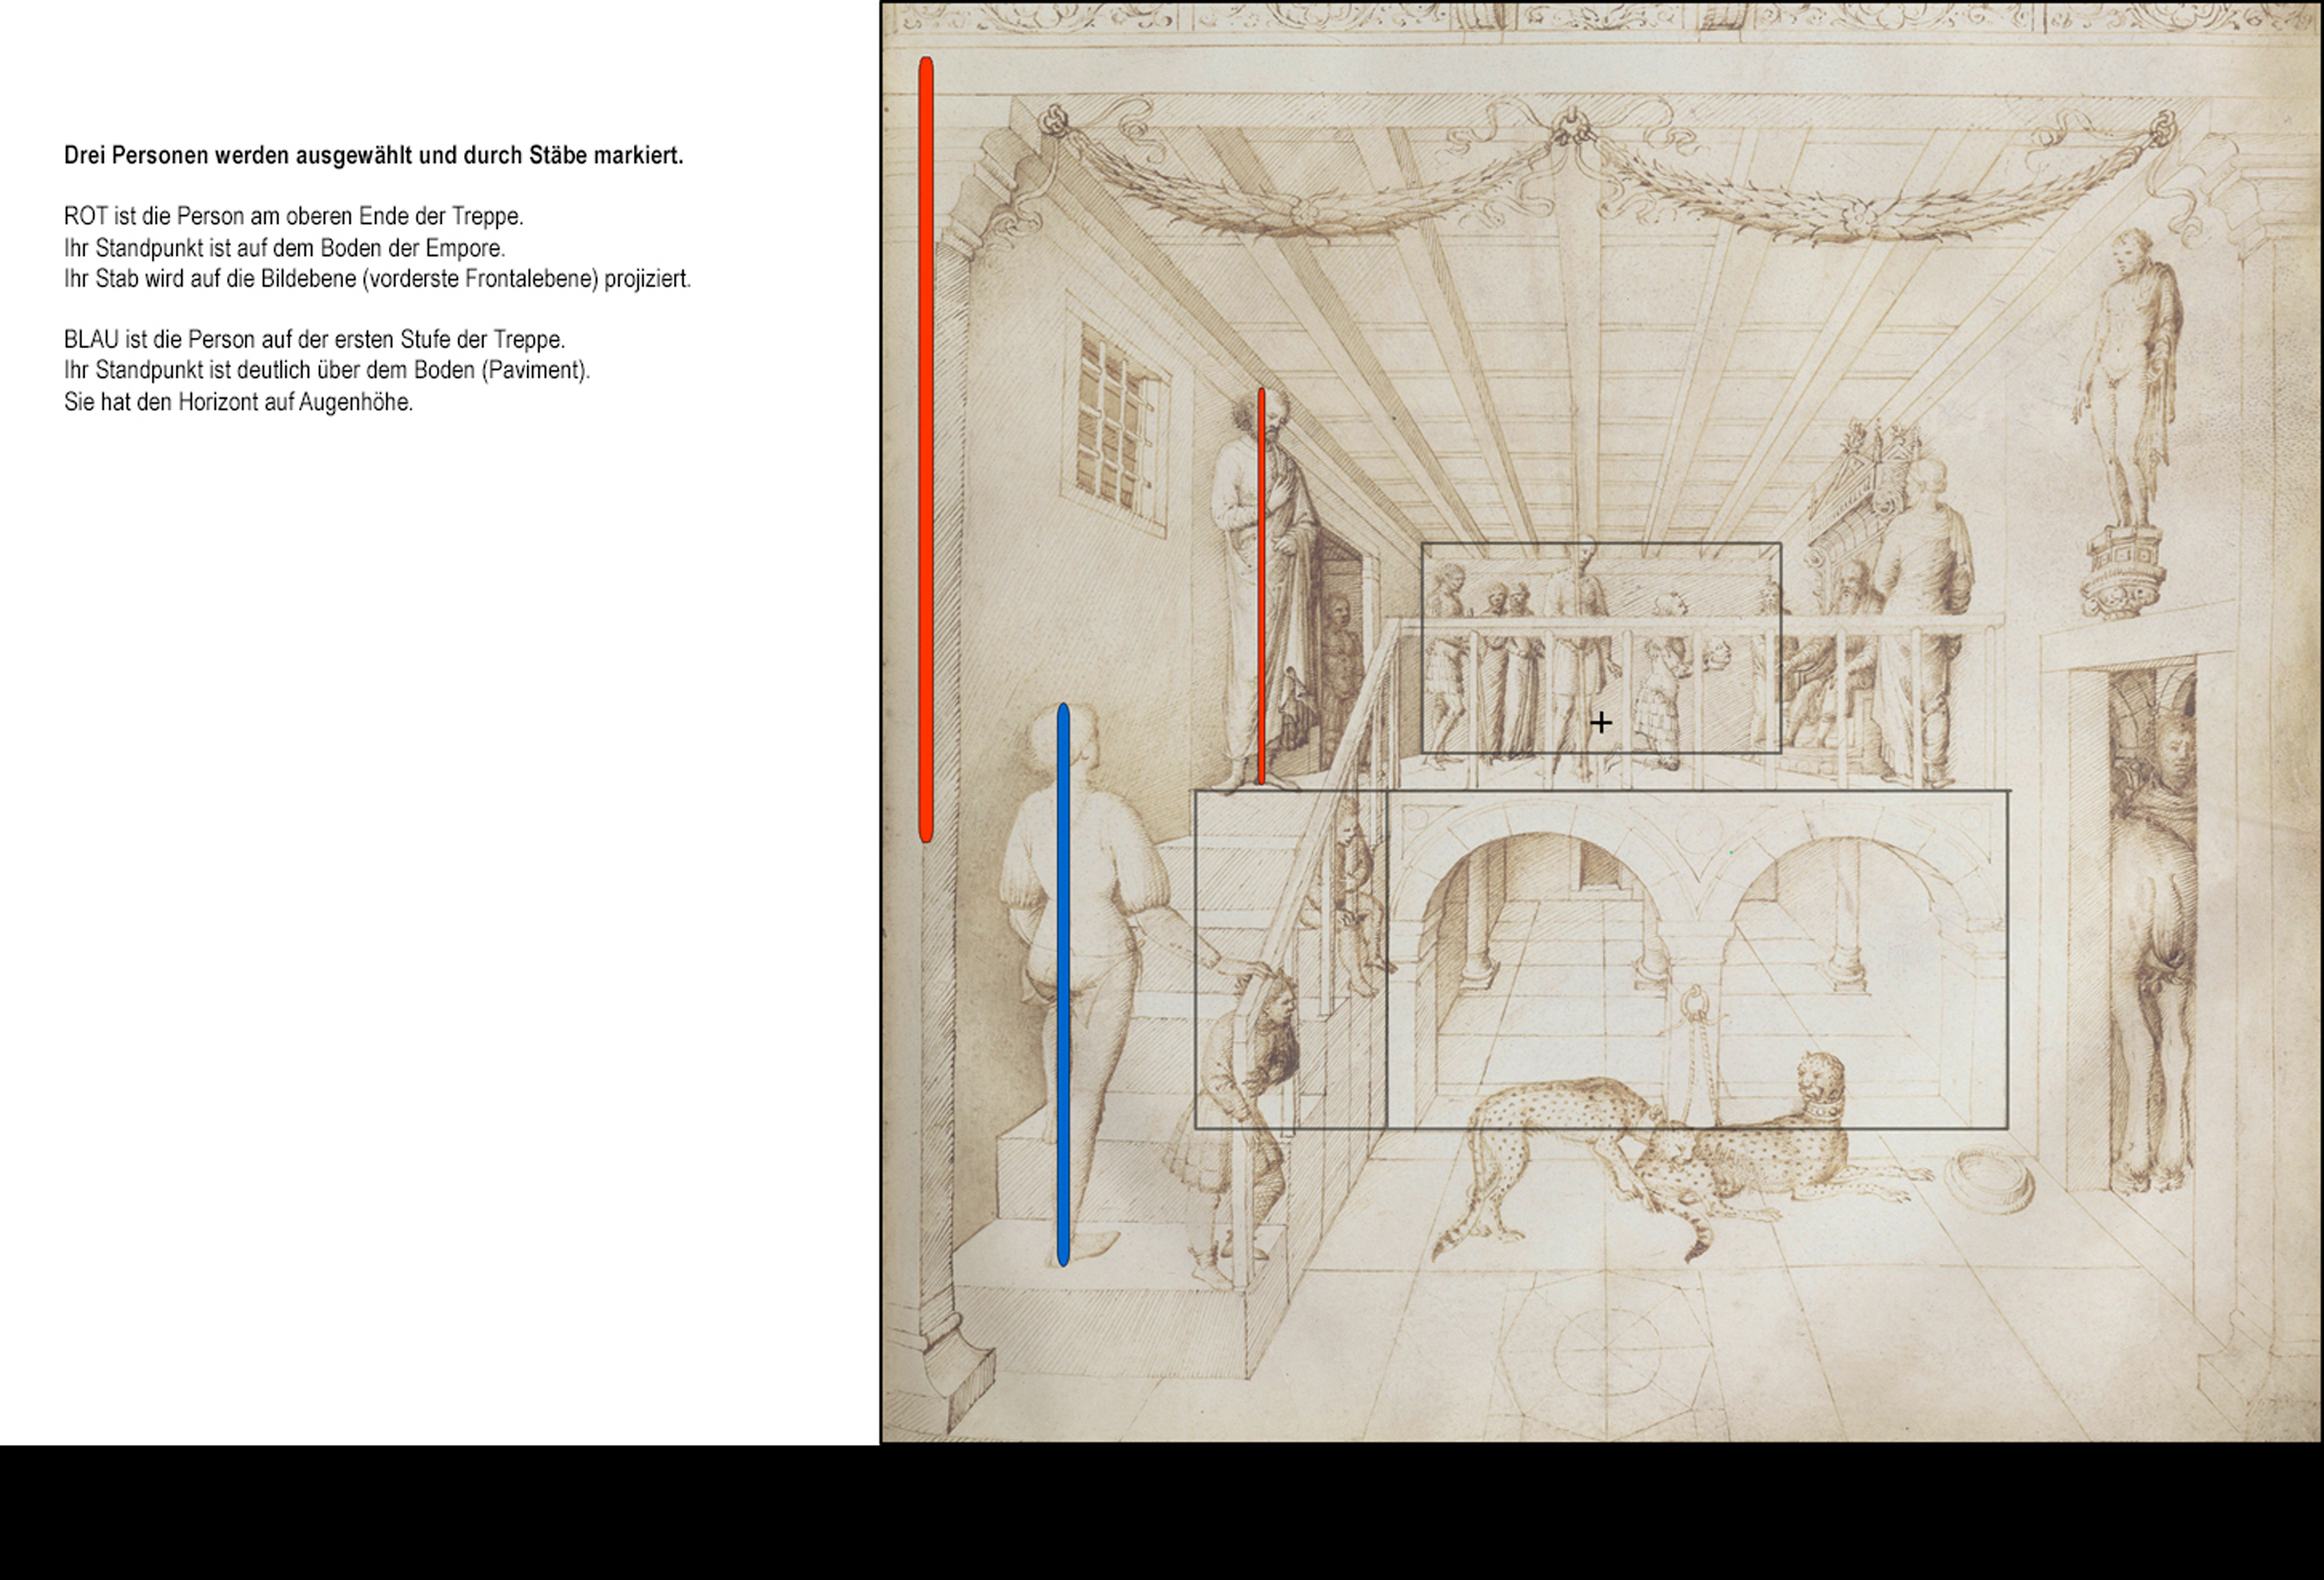 Drei Personen werden ausgewählt und durch Stäbe markiert.
ROT ist die Person am oberen Ende der Treppe.
Ihr Standpunkt ist auf dem Boden der Empore.
Ihr Stab wird auf die Bildebene (vorderste Frontalebene) projiziert.
BLAU ist die Person auf der ersten Stufe der Treppe.
Ihr Standpunkt ist deutlich über dem Boden (Paviment).
Sie hat den Horizont auf Augenhöhe.